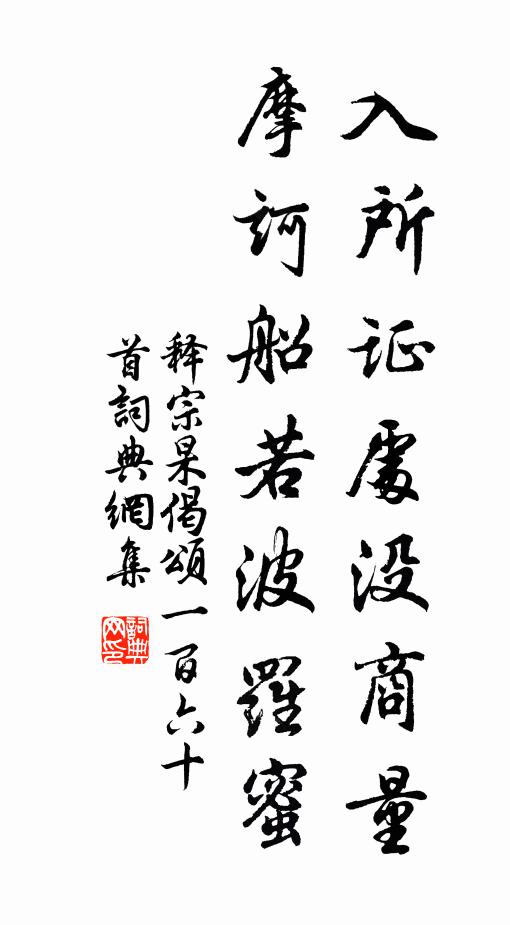 入所证處没商量
摩訶船若波羅蜜
释宗杲偈頌一百六十
首詞典網集
詞典
网印